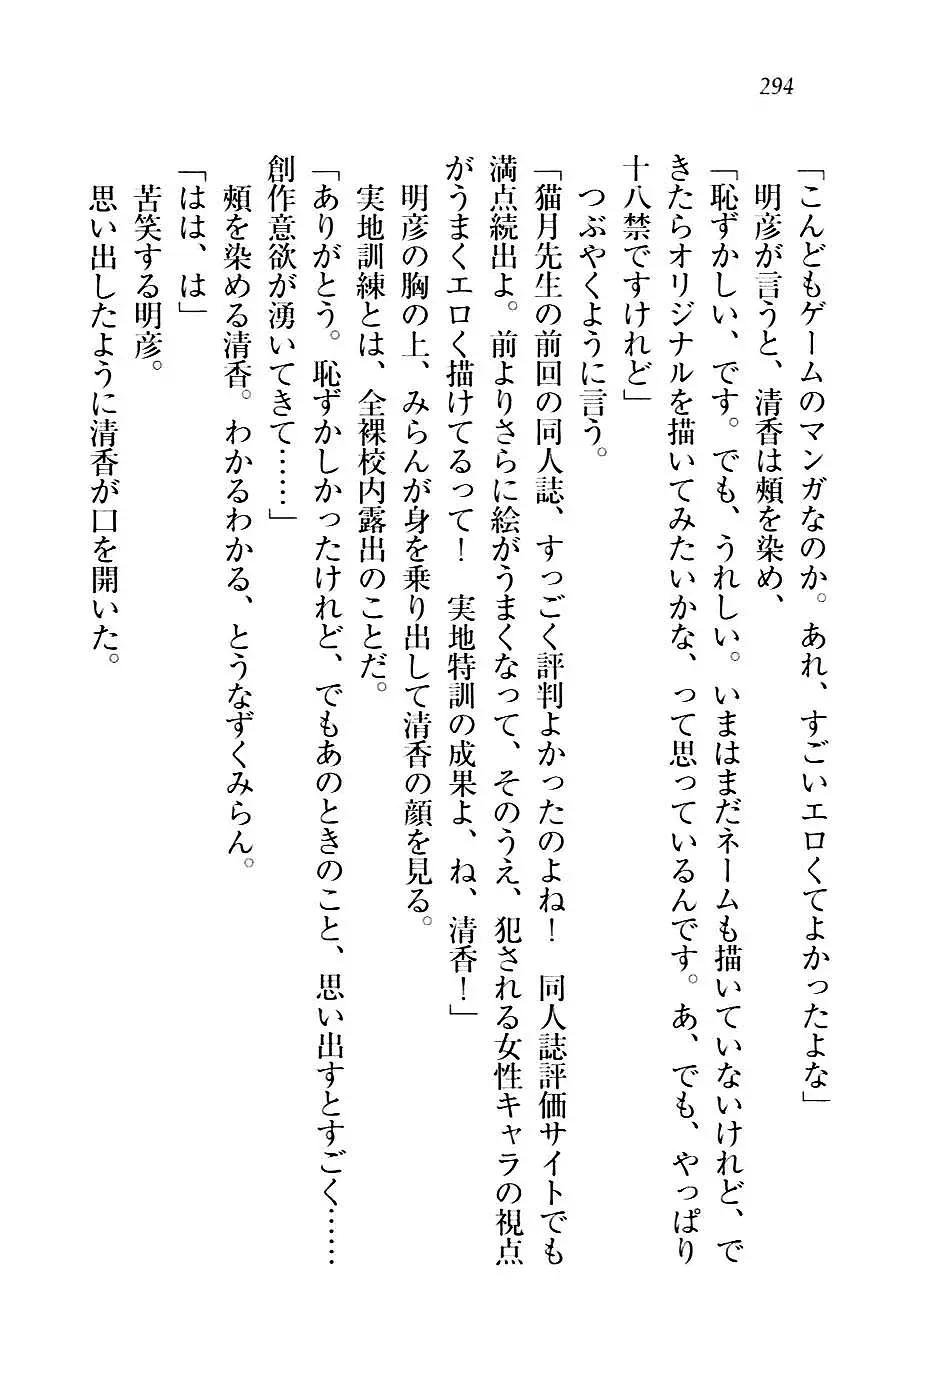 294
「こんどもゲームのマンガなのか。あれ、すごいエロくてよかったよな」
明彦が言うと、清香は頬を染め、
「恥ずかしい、です。でも、うれしい。いまはまだネームも描いていないけれど、で
きたらオリジナルを描いてみたいかな、って思っているんです。あ、でも、やっぱり
十八禁ですけれど」
つぶやくように言う。
「猫月先生の前回の同人誌、すっごく評判よかったのよね！　同人誌評価サイトでも
満点続出よ。前よりさらに絵がうまくなって、そのうえ、犯される女性キャラの視点
がうまくエロく描けてるって！　実地特訓の成果よ、ね、清香！」
明彦の胸の上、みらんが身を乗り出して清香の顔を見る。
実地訓練とは、全裸校内露出のことだ。
「ありがとう。恥ずかしかったけれど、でもあのときのこと、思い出すとすごく……
創作意欲が湧いてきて……」
頬を染める清香。わかるわかる、とうなずくみらん。
「はは、は」
苦笑する明彦。
思い出したように清香が口を開いた。